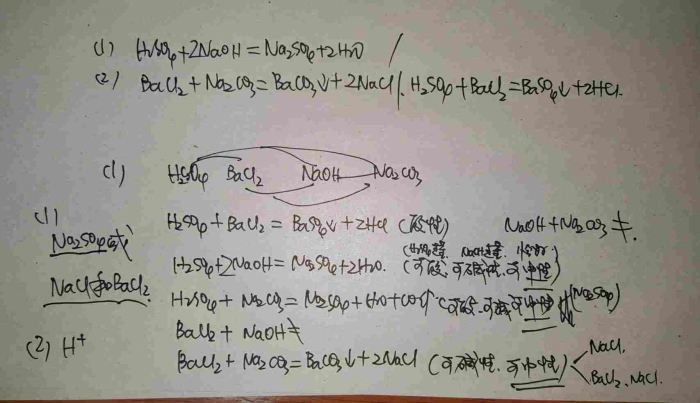 (1) H₂SO₄+2NaOH=Na₂SO₄+2H₂O /
(2) BaCl₂+Na₂CO₃=BaCO₃↓+2NaCl/. H₂SO₄+BaCl₂=BaSO₄↓+2HCl.
(1) H₂SO₄ BaCl₂ NaOH Na₂CO₃
(1) H₂SO₄+BaCl₂=BaSO₄↓+2HCl (酸性) NaOH+Na₂CO₃≠.
Na₂SO₄或
(H₂SO₄过量. NaOH过量. 恰好)
H₂SO₄+2NaOH=Na₂SO₄+2H₂O. (可酸、可碱性、可中性)
NaCl和BaCl₂.
H₂SO₄+Na₂CO₃=Na₂SO₄+H₂O+CO₂↑ (可酸、可碱、可中性) (Na₂SO₄)
BaCl₂+NaOH≠
(2) H⁺
BaCl₂+Na₂CO₃=BaCO₃↓+2NaCl (可碱性、可中性) NaCl.
BaCl₂、NaCl.